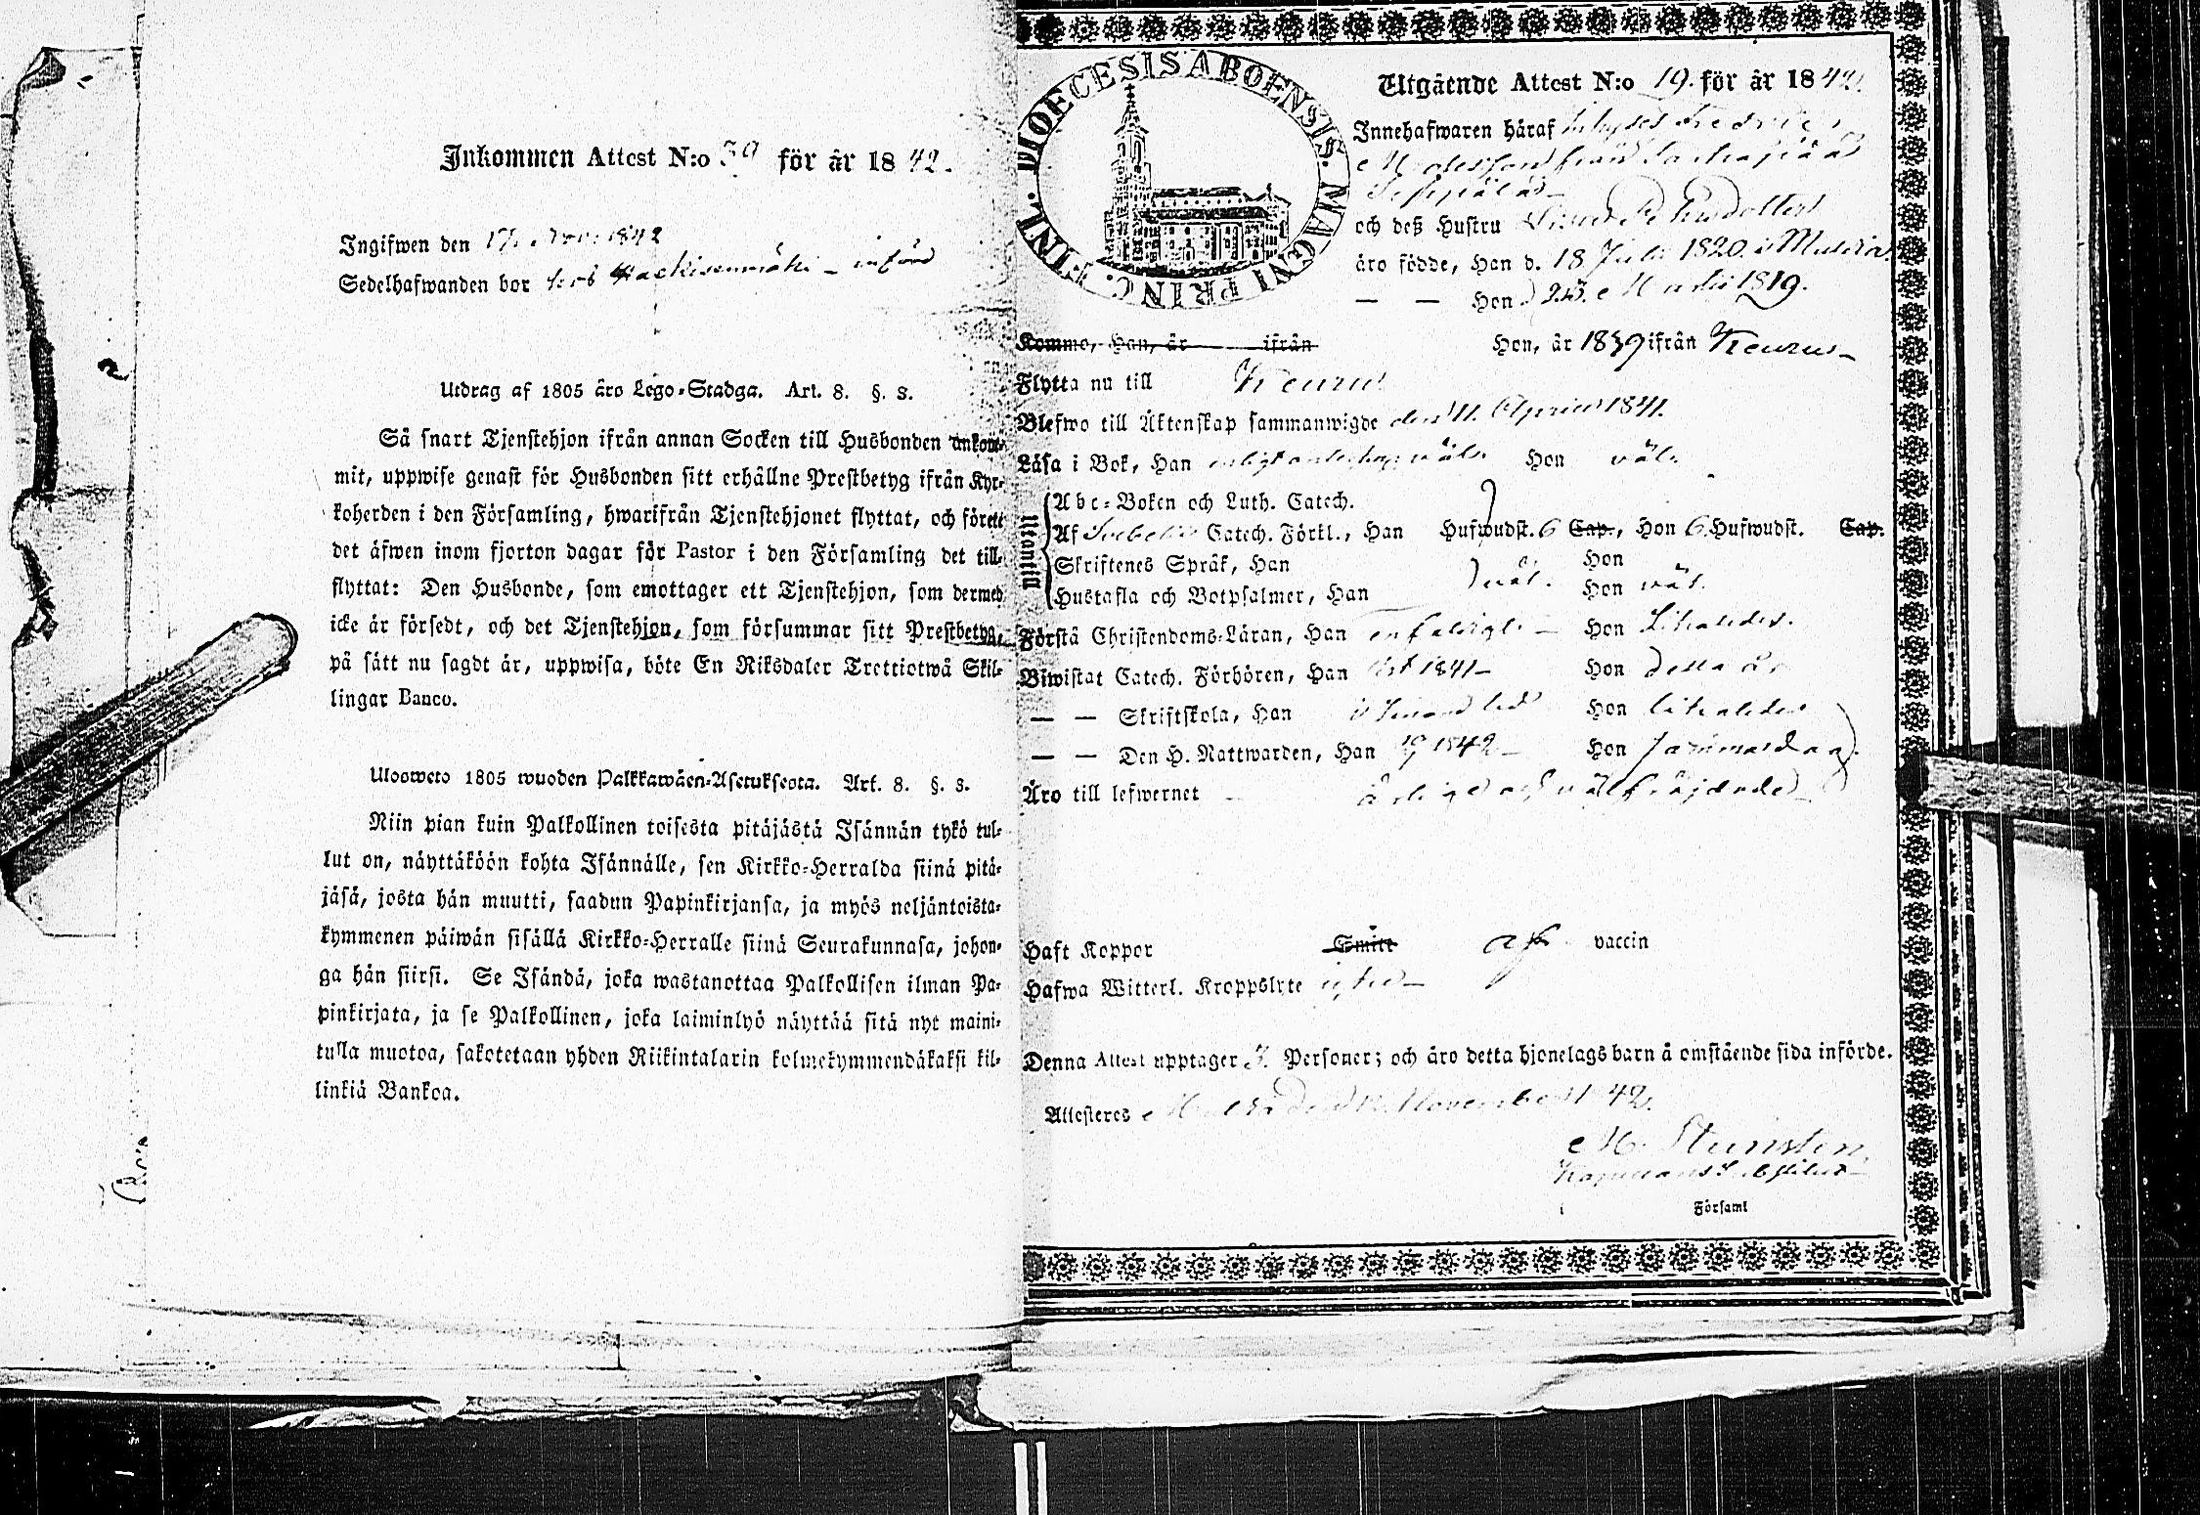 Inkommen Attest N:o 39 för år 1842.
Ingifwen den 17 1842
Sedelhafwanden bor införd
Utdrag af 1805 års Lego-Stadga. Art. 8. §. 3.
Så snart Tjenstehjon ifrån annan Socken till Husbonden ankom-
mit, uppwise genast för Husbonden sitt erhållne Prestbetyg ifrån Kyr-
koherden i den Församling, hwarifrån Tjenstehjonet flyttat, och förete
det äfwen inom fjorton dagar för Pastor i den Församling det till-
flyttat: Den Husbonde, som emottager ett Tjenstehjon, som dermed
icke är försedt, och det Tjenstehjon, som försummar sitt Prestbetyg,
på sätt nu sagdt är, uppwisa, böte En Riksdaler Trettiotwå Skil-
lingar Banco.
Ulosweto 1805 wuoden Palkkawäen-Asetuksesta. Art. 8. §. 3.
Niin pian kuin Palkollinen toisesta pitäjästä Isännän tykö tul-
lut on, näyttäköön kohta Isännälle, sen Kirkko-Herralda siinä pitä-
jäsä, josta hän muutti, saadun Papinkirjansa, ja myös neljäntoista-
kymmenen päiwän sisällä Kirkko-Herralle siinä Seurakunnasa, johon-
ga hän siirsi. Se Isändä, joka wastanottaa Palkollisen ilman Pa-
pinkirjata, ja se Palkollinen, joka laiminlyö näyttää sitä nyt maini-
tulla muotoa, sakotetaan yhden Riikintalarin kolmekymmendäkaksi kil-
linkiä Bankoa.
DIOECESIS ABOENSIS. MAGNI PRINC. FINL.
Utgående Attest N:o 19. för år 1842.
Innehafwaren häraf
och deß Hustru
äro födde, Han d. 18 Julii 1820. i Multia
— — Hon d 23. Martii 1819.
Kommo, Han, år ifrån Hon, år 1839 ifrån Keuru
Flytta nu till Keuru
Blefwo till Äktenskap sammanwigde den 11. Aprill 1841.
Läsa i Bok, Han wäl Hon wäl
Utantill
Abc-Boken och Luth. Catech.
Af Svebelii Catech. Förkl., Han Hufwudst. 6 Cap., Hon 6 Hufwudst. Cap.
Skriftenes Språk, Han Hon
Hustafla och Botpsalmer, Han wäl. Hon wäl.
Förstå Christendoms-Läran, Han enfaldigt Hon likaledes.
Biwistat Catech. Förhören, Han 1841 Hon detta år
— — Skriftskola, Han Hon likaledes
— — Den H. Nattwarden, Han 1842 Hon samma dag.
Äro till lefwernet ärlige och wälfräjdade
Haft Koppor Smitt af vaccin
Hafwa Witterl. Kroppslyte
Denna Attest upptager 3. Personer; och äro detta hjonelags barn å omstående sida införde.
Attesteras Multia den November 1842.
Församl